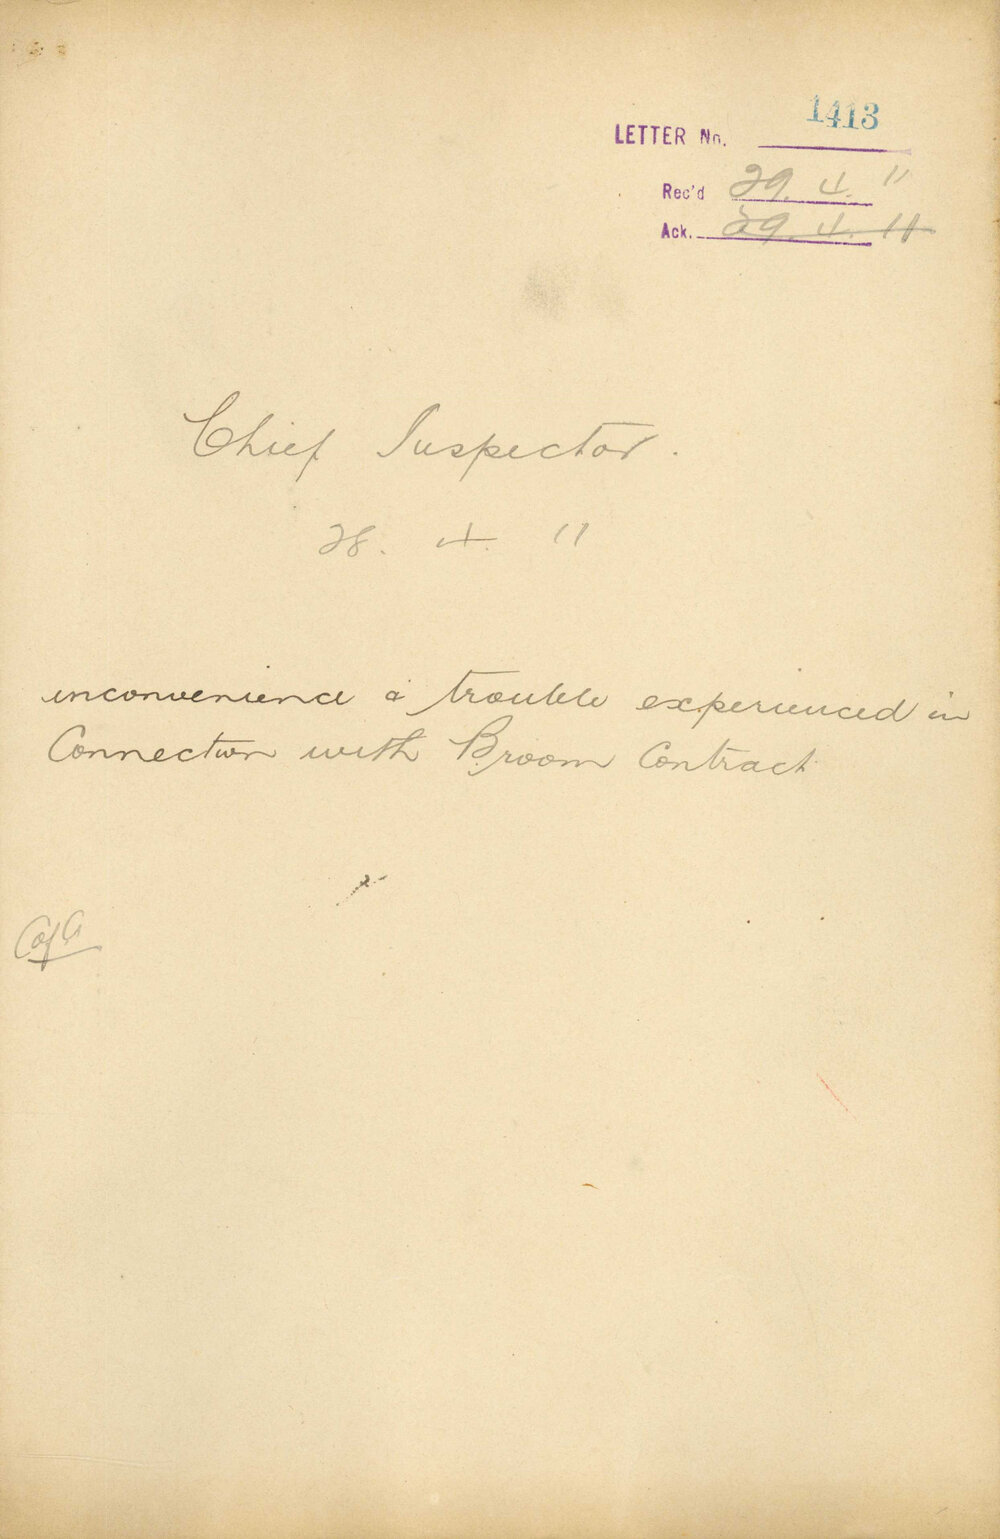 1413
LETTER No.
Rec'd 29. 4. 11
Ack. 29. 4. 11
Chief Inspector.
28. 4. 11
inconvenience & trouble experienced in
Connection with Broom Contract
C of A